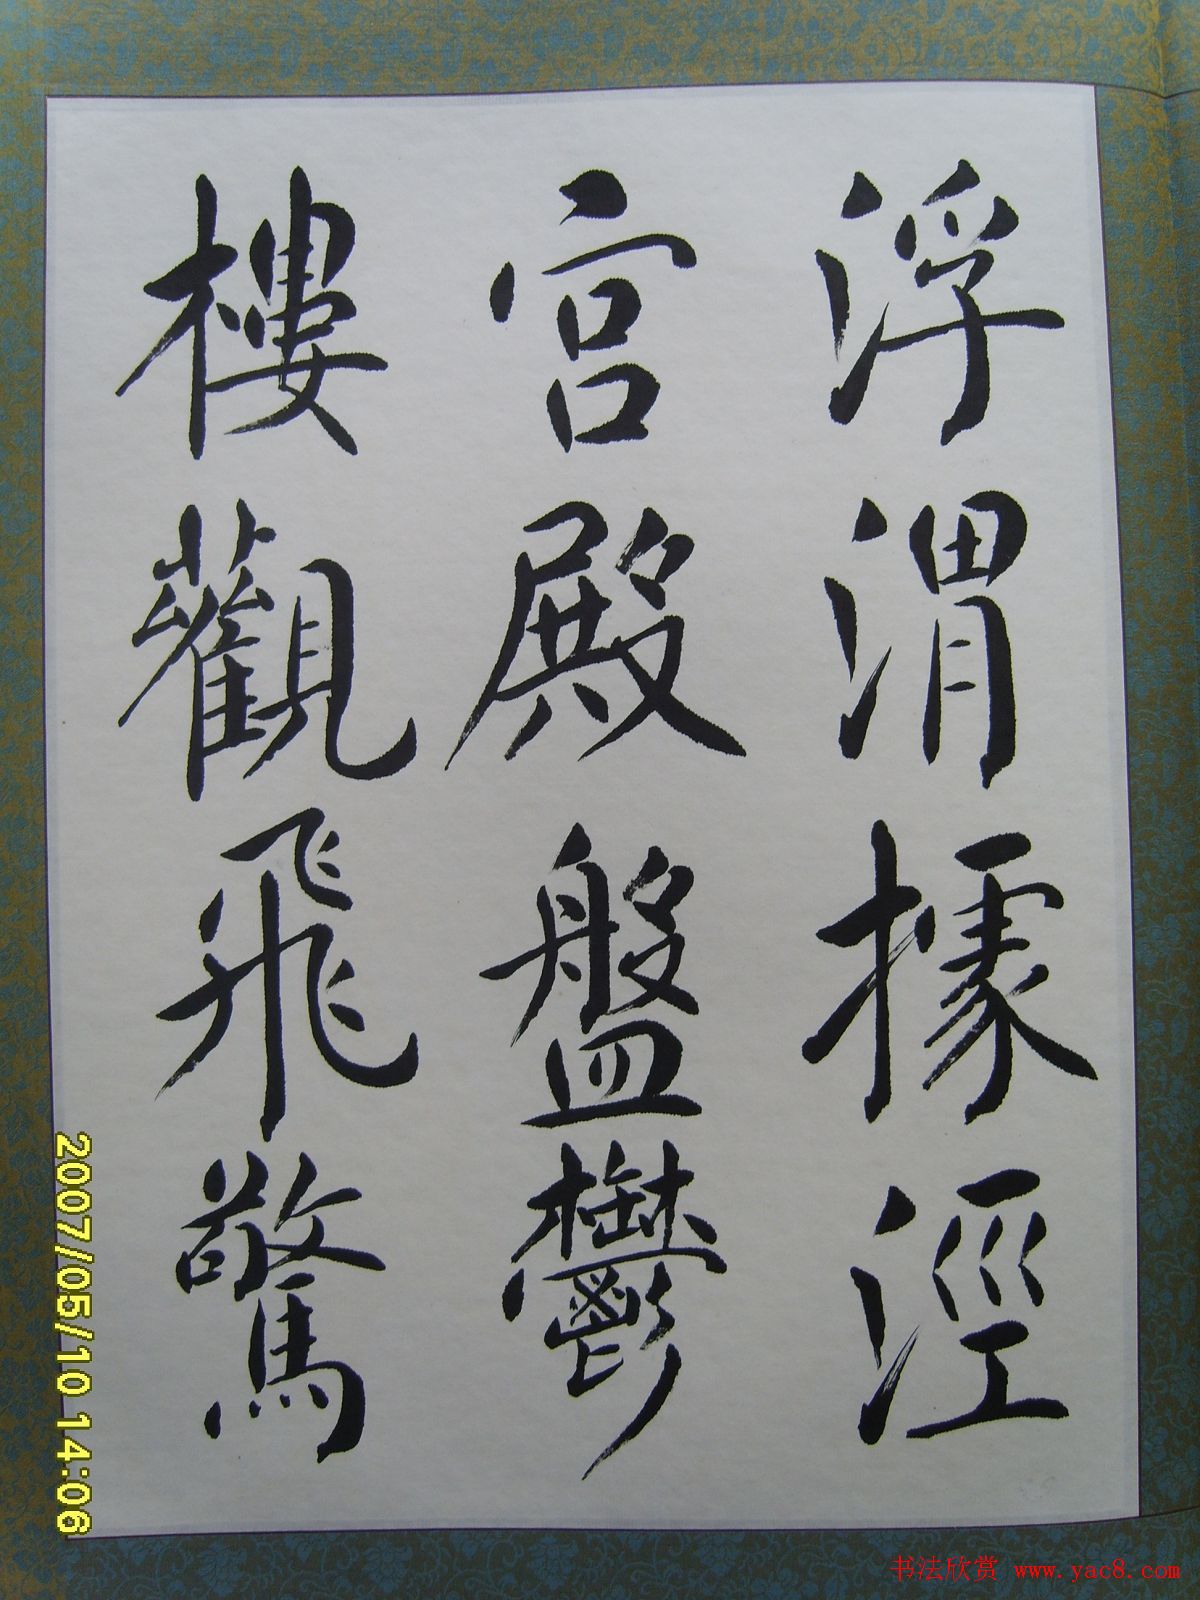 浮渭據涇
宮殿盤鬱
樓觀飛驚
2007/05/10 14:06
书法欣赏 www.yac8.com